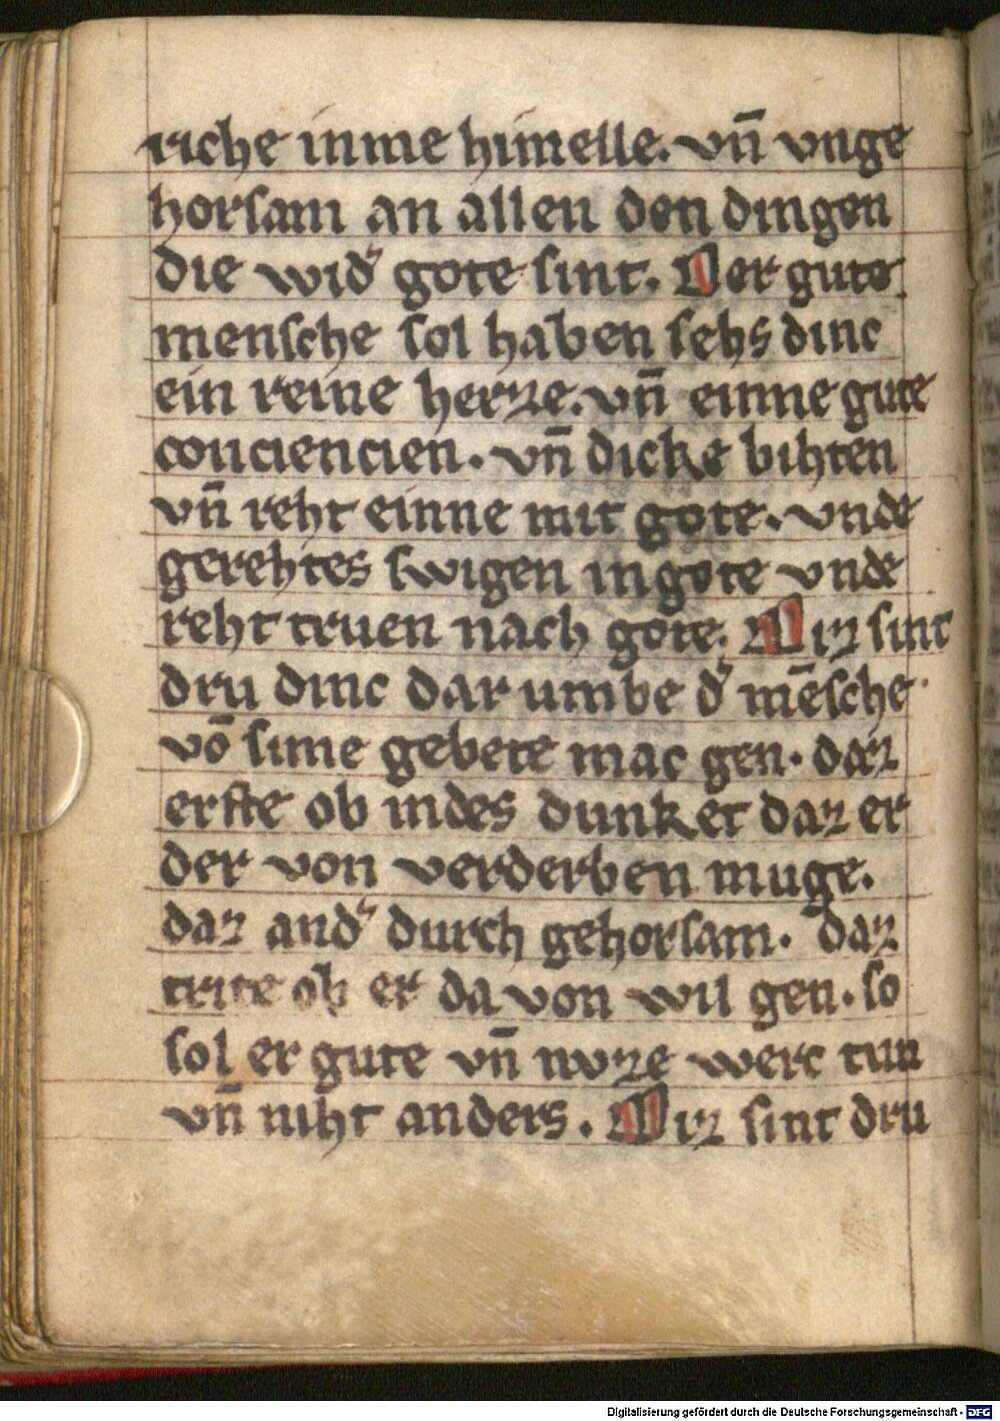 riche inme himelle. vn̄ vnge
horsam an allen den dingen
die wid͛ gote sint. Der gute
mensche sol haben sehs dinc
ein reine herze. vn̄ einne gute
conciencien. vn̄ dicke bihten
vn̄ reht einne mit gote. vnde
gerehtes swigen in gote vnde
reht truen nach gote. Diz sint
dru dinc dar umbe d͛ mēsche
vō sime gebete mac gen. daz
erste ob indes dunket daz er
der von verderben muge.
daz and͛ durch gehorsam. Daz
trite ob er da von wil gen. so
sol er gute vn̄ nvze werc tun
vn̄ niht anders. Diz sint dru
Digitalisierung gefördert durch die Deutsche Forschungsgemeinschaft - DFG